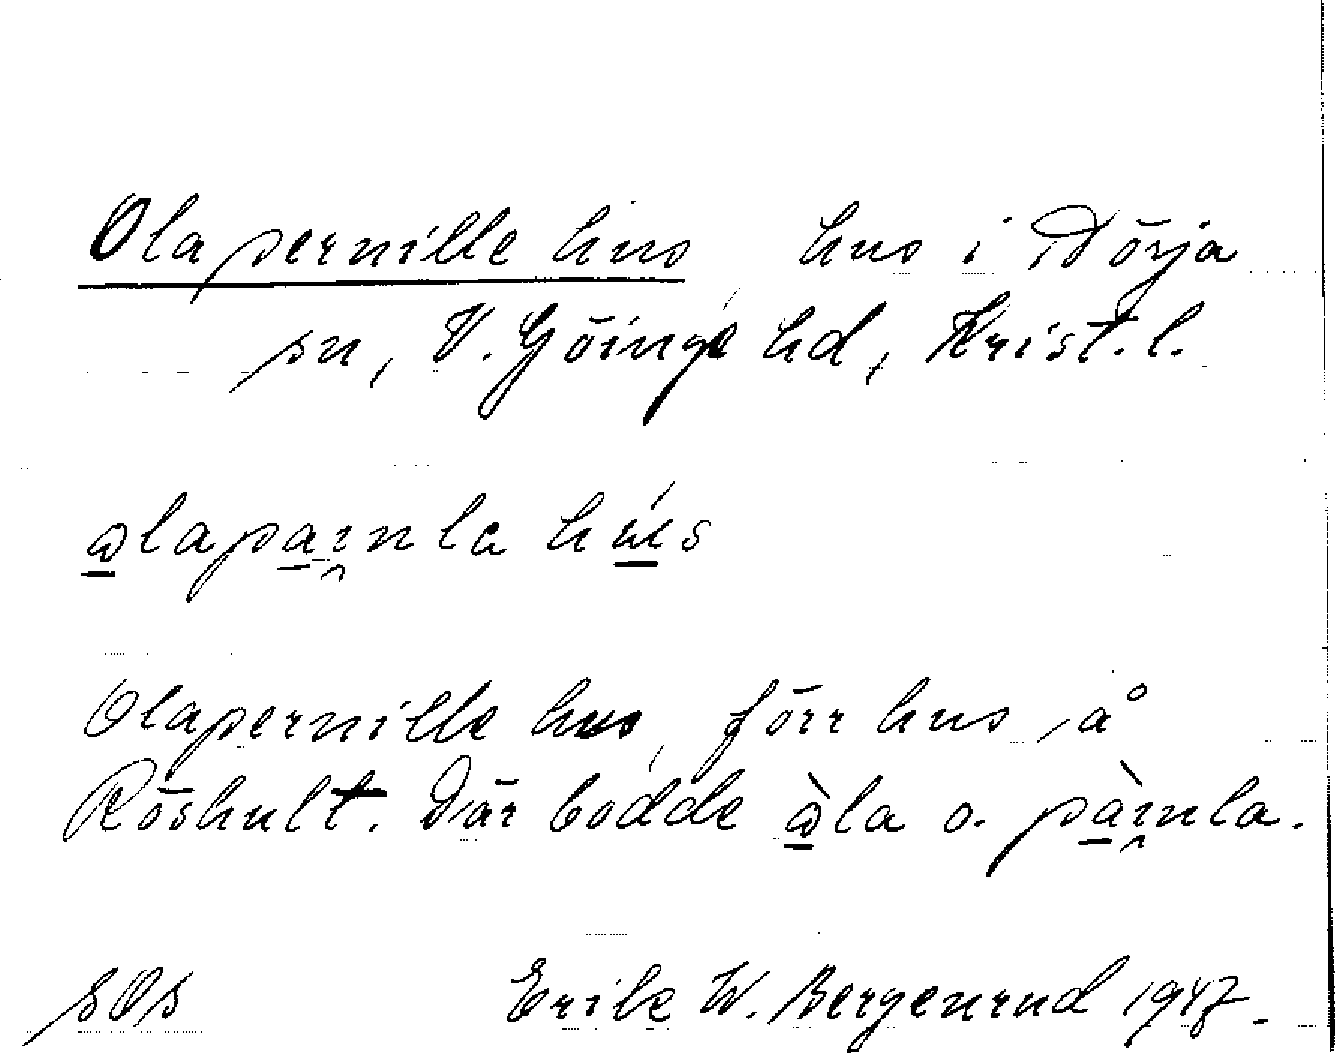 Olapernille hus hus i Nörja
sn, V. Göinge hd, Krist. l.
ɷlapaɹnla hús
Olapernille hus, förr hus å
Röshult. Där bodde ɷ̀la o. pàɹnla.
sOs Erik W. Bergenrud 1947.